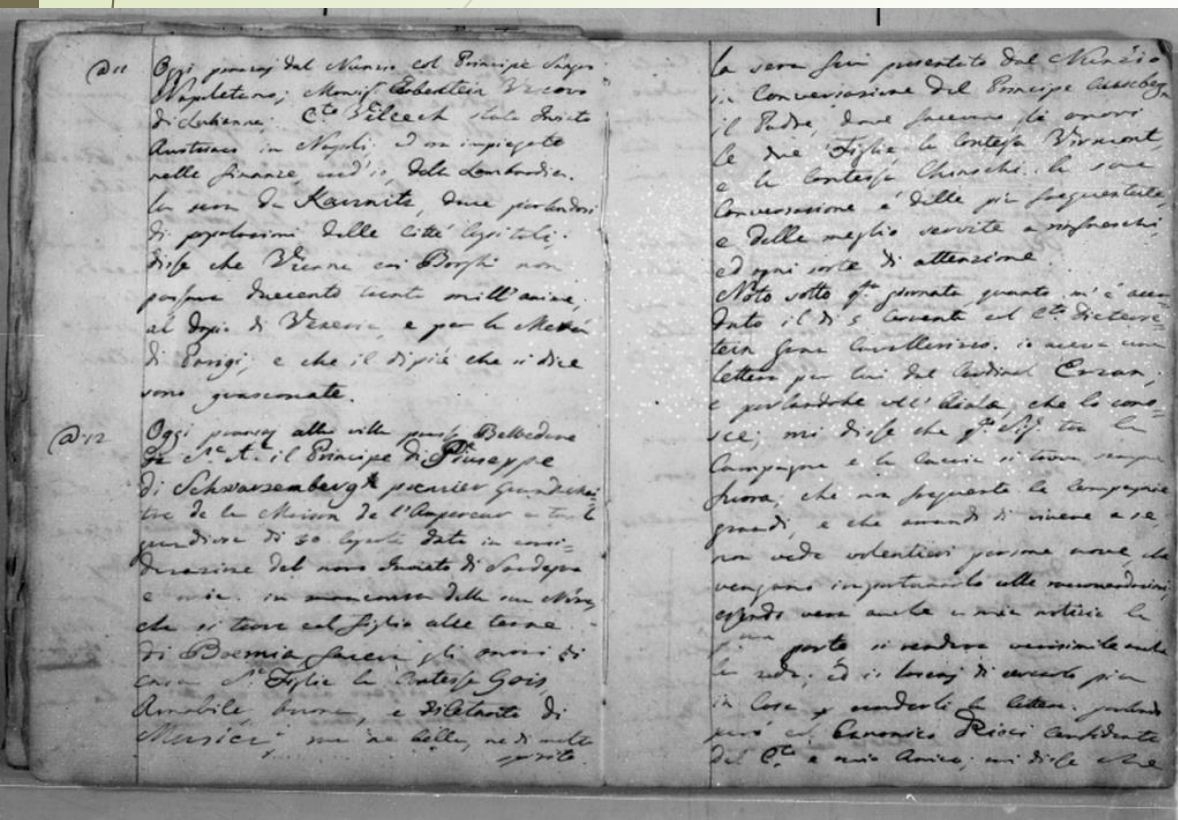 @ 11
Oggi pranzai dal Nunzio col Principe
Napoletano; Vescovo
di Lubiana; C.te Vilceck stato Inviato
Austriaco in Napoli, ed ora impiegato
nelle finanze della Lombardia.
la sera da Kaunitz, dove parlandosi
di popolazioni delle Città Capitali,
disse che Vienna coi Borghi non
passava duecento trenta mill'anime,
al dopio di Venezia, e per la Metà
di Parigi; e che il di più che si dice
sono guasconate.
@ 12
Oggi pranzai alla villa presso Belvedere
di S.A. il Principe di Giuseppe
di Schwarzemberg premier
de la Maison de l'Empereur
di 30 Coperti data in consi=
derazione del novo Inviato di Sardegna
e mia. in mancanza della sua
che si trova col figlio alle terme
di Boemia faceva gli onori di
casa Figlia la Contessa Gois,
Amabile, buona, e diletante di
Musica, ma ne bella, ne di molto
spirito.
la sera fui presentato dal Nunzio
in Conversazione del Principe
il Padre, dove facevano gli onori
le due Figlie la Contessa
e la Contessa Chinschi. la sua
Conversazione è delle più frequentate,
e delle meglio servite a rinfreschi,
ed ogni sorte di attenzione.
Noto sotto q.ta giornata quanto m'è acca=
duto il di 5 Corrente col C.te Dietric=
tein Gran Cavallerizzo. io aveva una
lettera per lui dal Cardinal Erzan;
e parlandone che lo cono=
sce; mi disse che tra la
Campagna e la Caccia si trova sempre
fuora; che non frequenta le Compagnie
grandi, e che amando di vivere a se,
non vede volentieri persone nove, che
vengano importunarlo colle raccomandazioni,
essendo vera anche a mia notizia la
p.ma parte si rendeva verisimile anche
la
in Casa la lettera. parlando
però col Canonico Ricci Confidente
del C.te e mio Amico; mi disse che